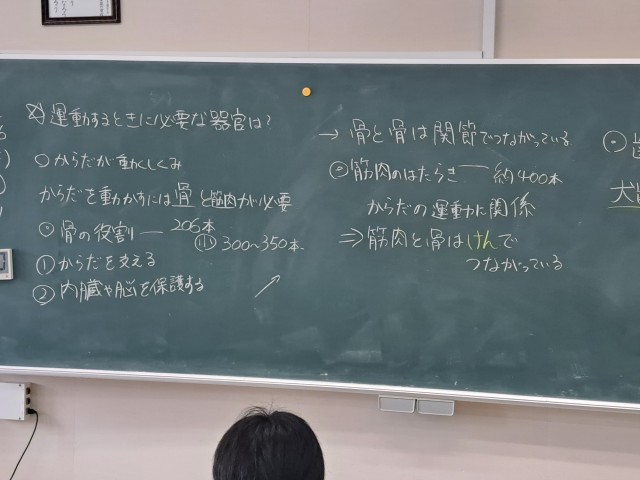 運動するときに必要な器官は?
○からだが動くしくみ
からだを動かすには骨と筋肉が必要
◎骨の役割 — 206本
(小) 300〜350本
①からだを支える
②内臓や脳を保護する
→ 骨と骨は関節でつながっている
◎筋肉のはたらき — 約400本
からだの運動に関係
⇒筋肉と骨はけんで
つながっている